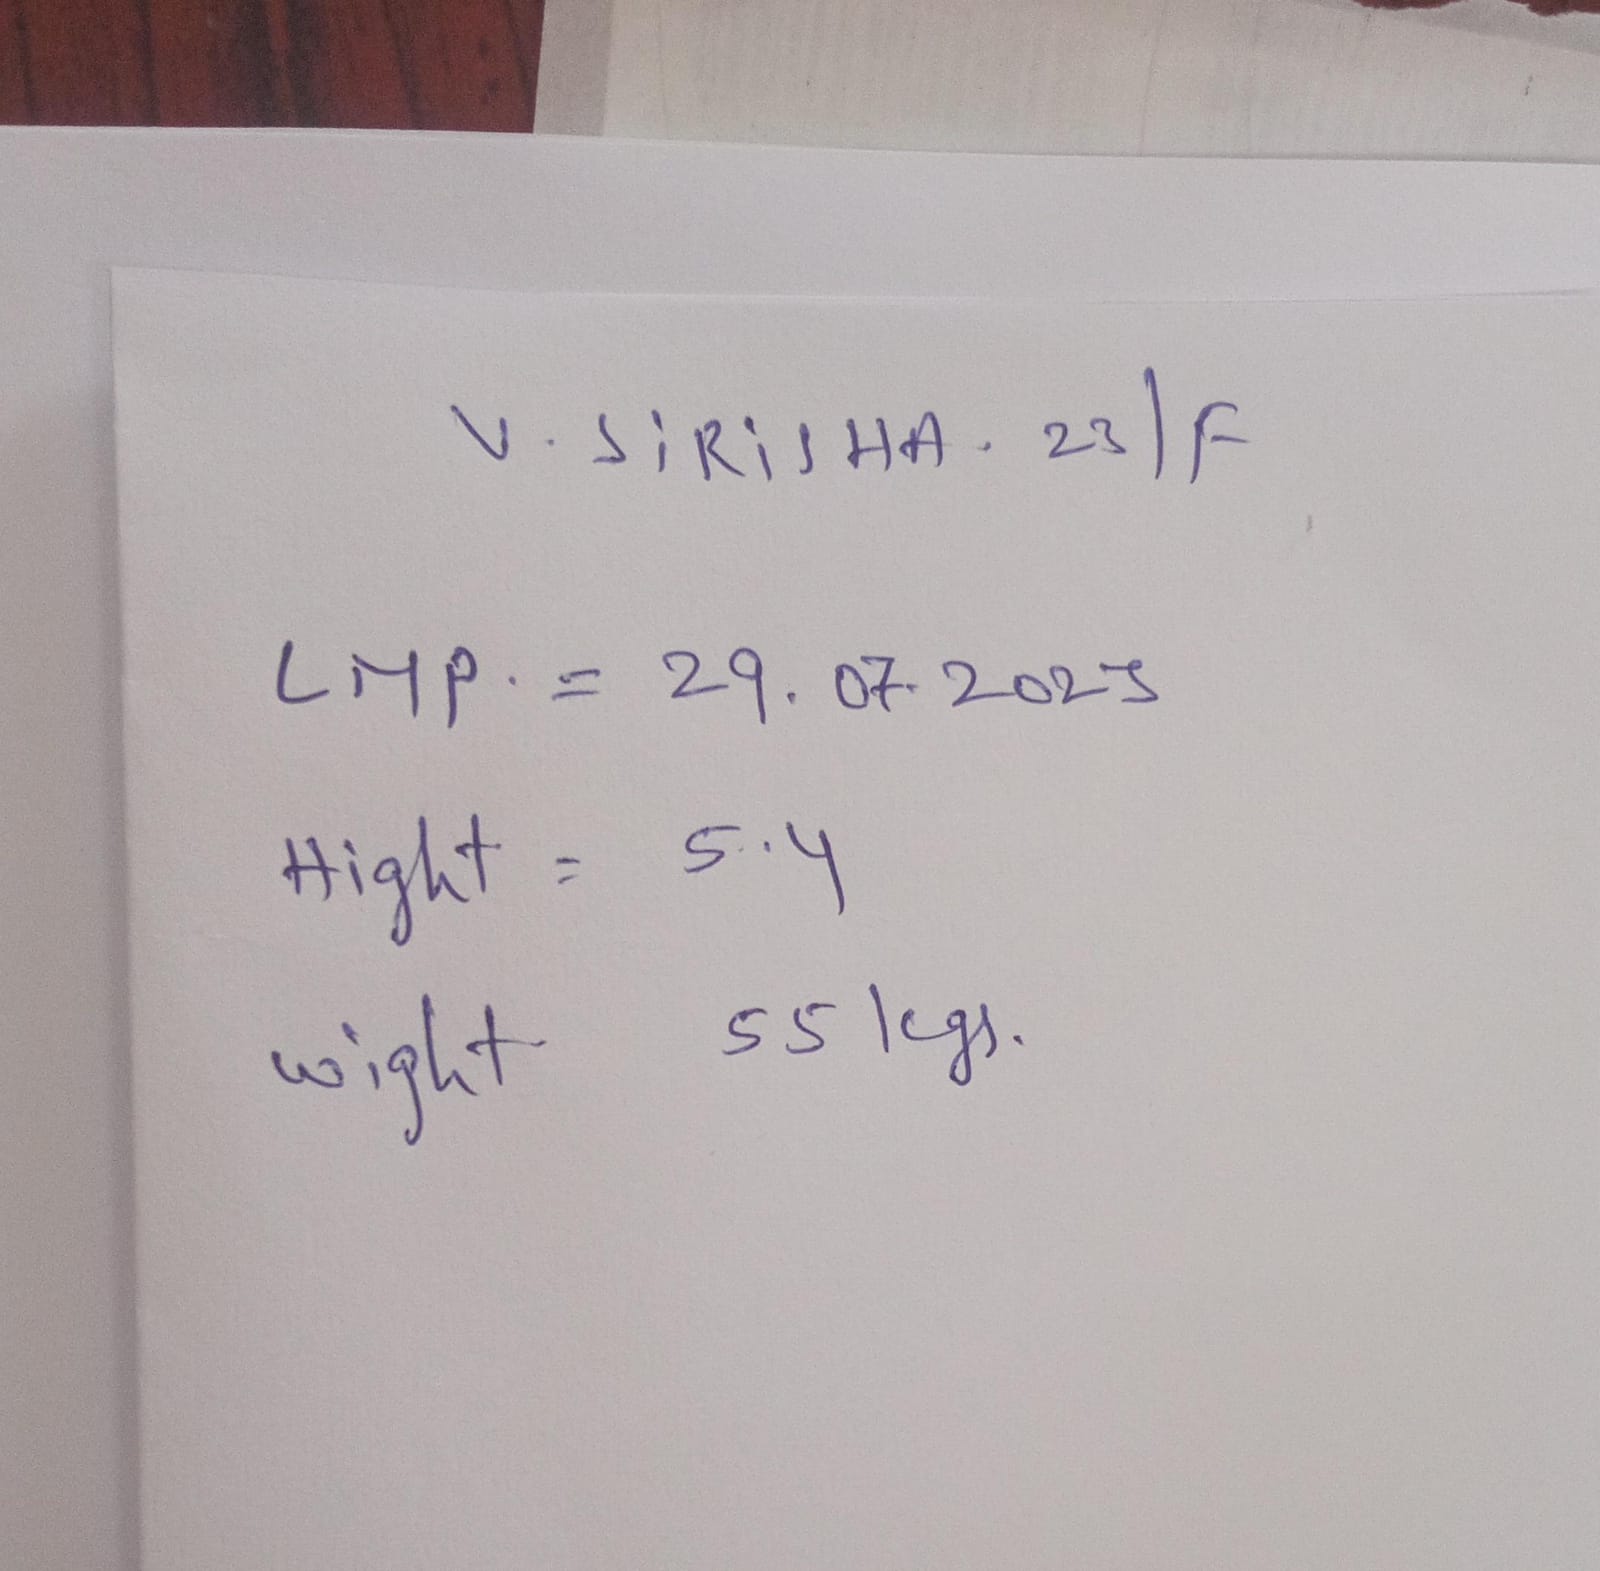 V. SiRiSHA. 23/F
LMP. = 29.07.2023
Hight = 5.4
wight 55 kgs.